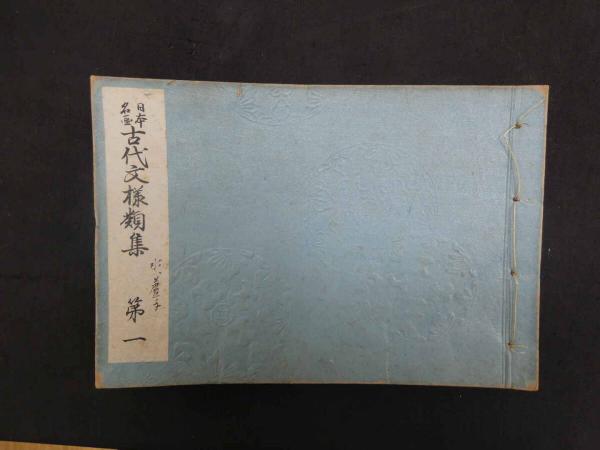 日本
名画
古代文様類集
第一